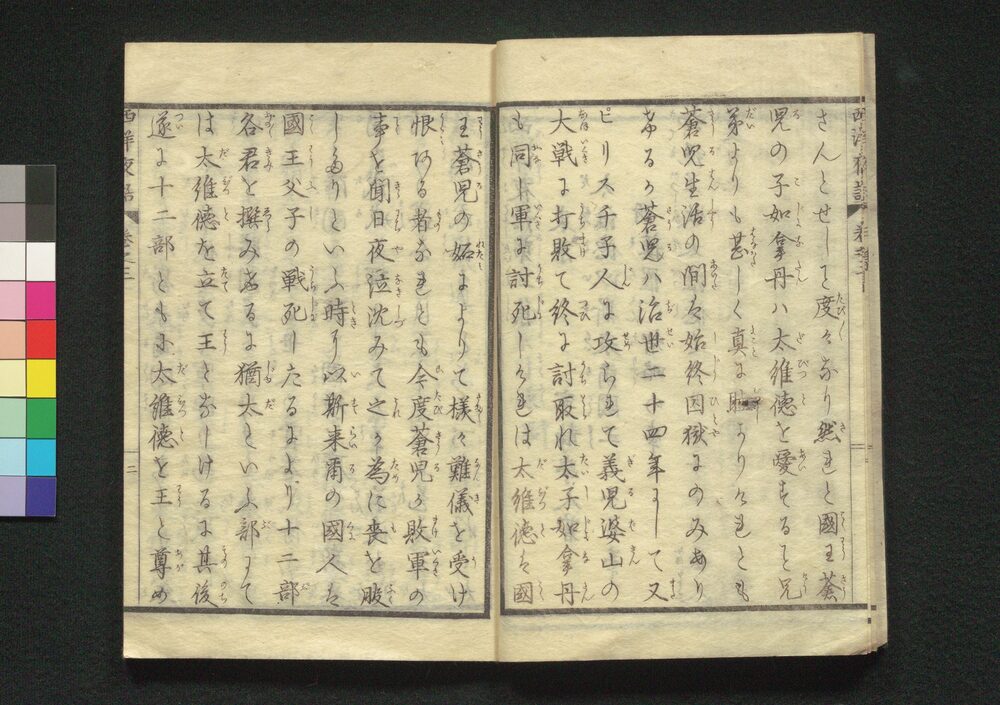 さんとせしこと度々なり然れと國王蒼
児の子如拿丹ハ太維徳を愛することと兄
弟よりも甚しく真にありけれとも
蒼児生活の間は始終囚獄にのみあり
ける蒼児ハ治世二十四年にして又
ピリス千子人に攻られて義児婆山の
大戦に打敗て終に討取れ太子如拿丹
も同し軍に討死しけれは太維徳は國
王蒼児の妬によりて様々難儀を受け
恨ある者なれとも今度蒼児の敗軍の
事を聞日夜泣沈みて之か為に喪を服
しありといふ時に以斯来爾の國人は
國王父子の戦死したるにより十二部
各君を撰みあるに猶太といふ部にて
は太維徳を立て王となしけるに其後
遂に十二部ともに太維徳を王と尊め
西洋夜話 巻之三
二